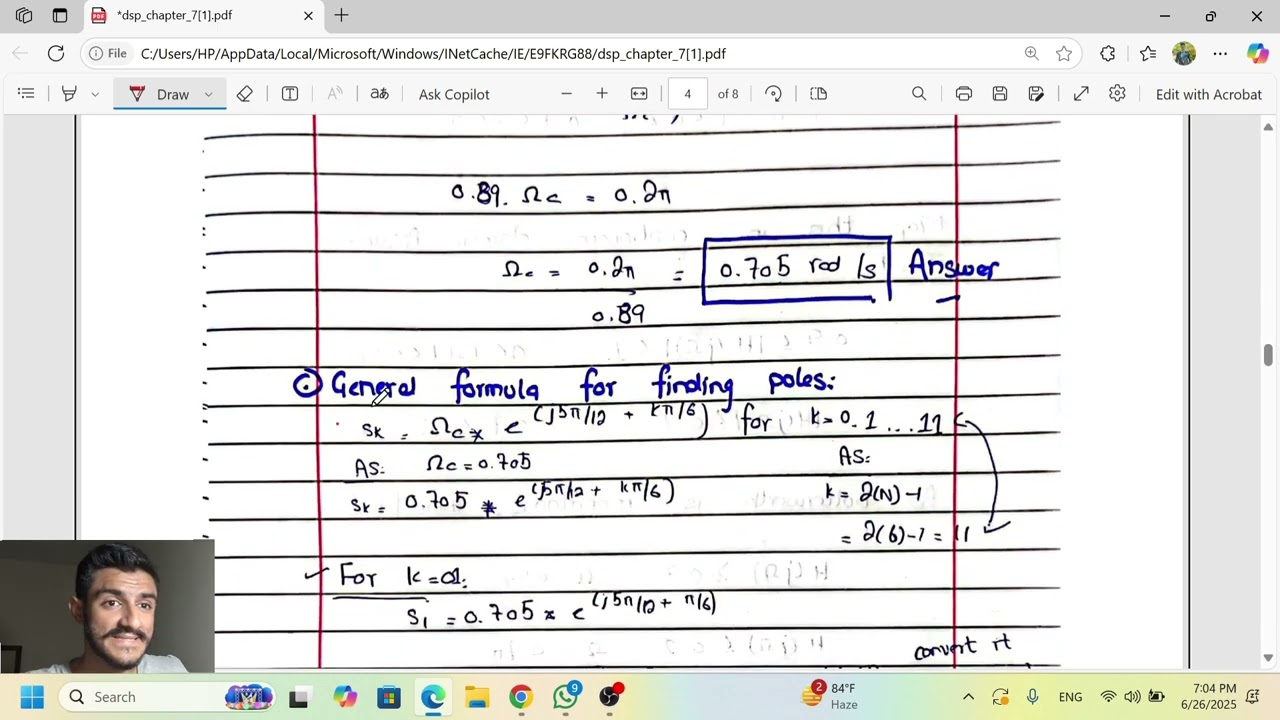 *dsp_chapter_7[1].pdf
File C:/Users/HP/AppData/Local/Microsoft/Windows/INetCache/IE/E9FKRG88/dsp_chapter_7[1].pdf
Draw aあ Ask Copilot 4 of 8 Edit with Acrobat
0.89. Ωc = 0.2π
Ωc = 0.2π = 0.705 rad/s Answer
0.89
C General formula for finding poles:
sk = Ωc* e^(j5π/12 + kπ/6) for k=0.1...11
AS: Ωc=0.705 AS:
sk= 0.705 * e^(j5π/12 + kπ/6) k= 2(N)-1
= 2(6)-1 = 11
For k=01:
S1 = 0.705 x e^(j5π/12 + π/6)
convert it
Search 9 2 84°F Haze ENG 7:04 PM 6/26/2025